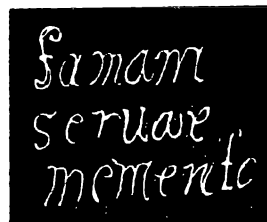 famam
seruare
memento